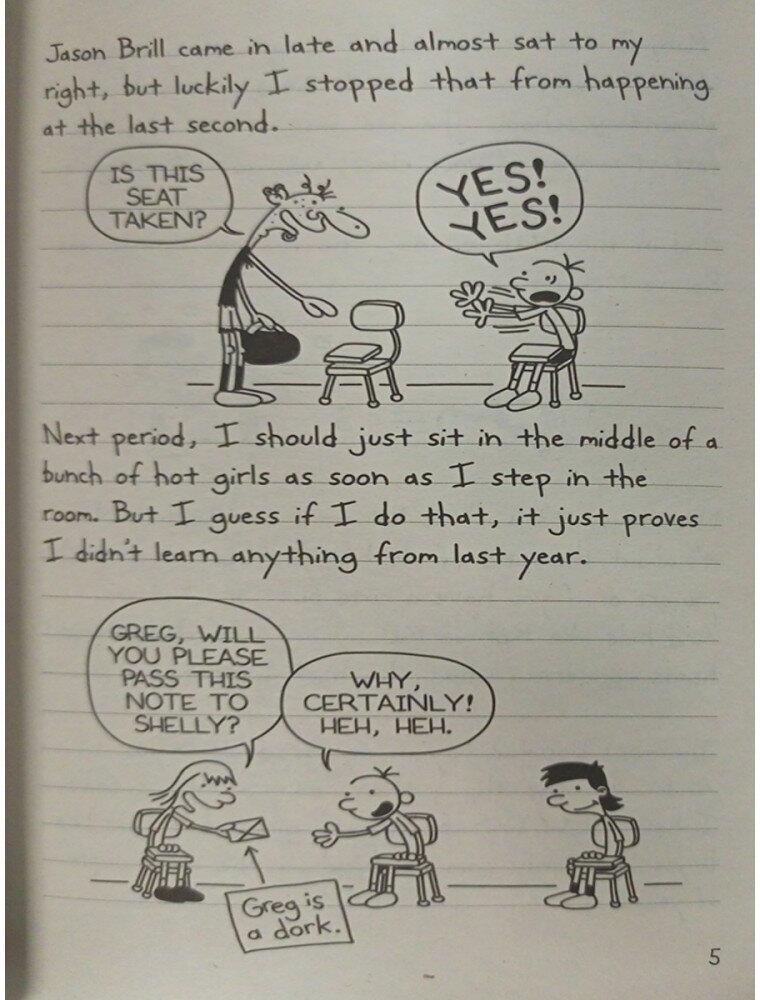 Jason Brill came in late and almost sat to my
right, but luckily I stopped that from happening
at the last second.
IS THIS
SEAT
TAKEN?
YES!
YES!
Next period, I should just sit in the middle of a
bunch of hot girls as soon as I step in the
room. But I guess if I do that, it just proves
I didn't learn anything from last year.
GREG, WILL
YOU PLEASE
PASS THIS
NOTE TO
SHELLY?
WHY,
CERTAINLY!
HEH, HEH.
Greg is
a dork.
5